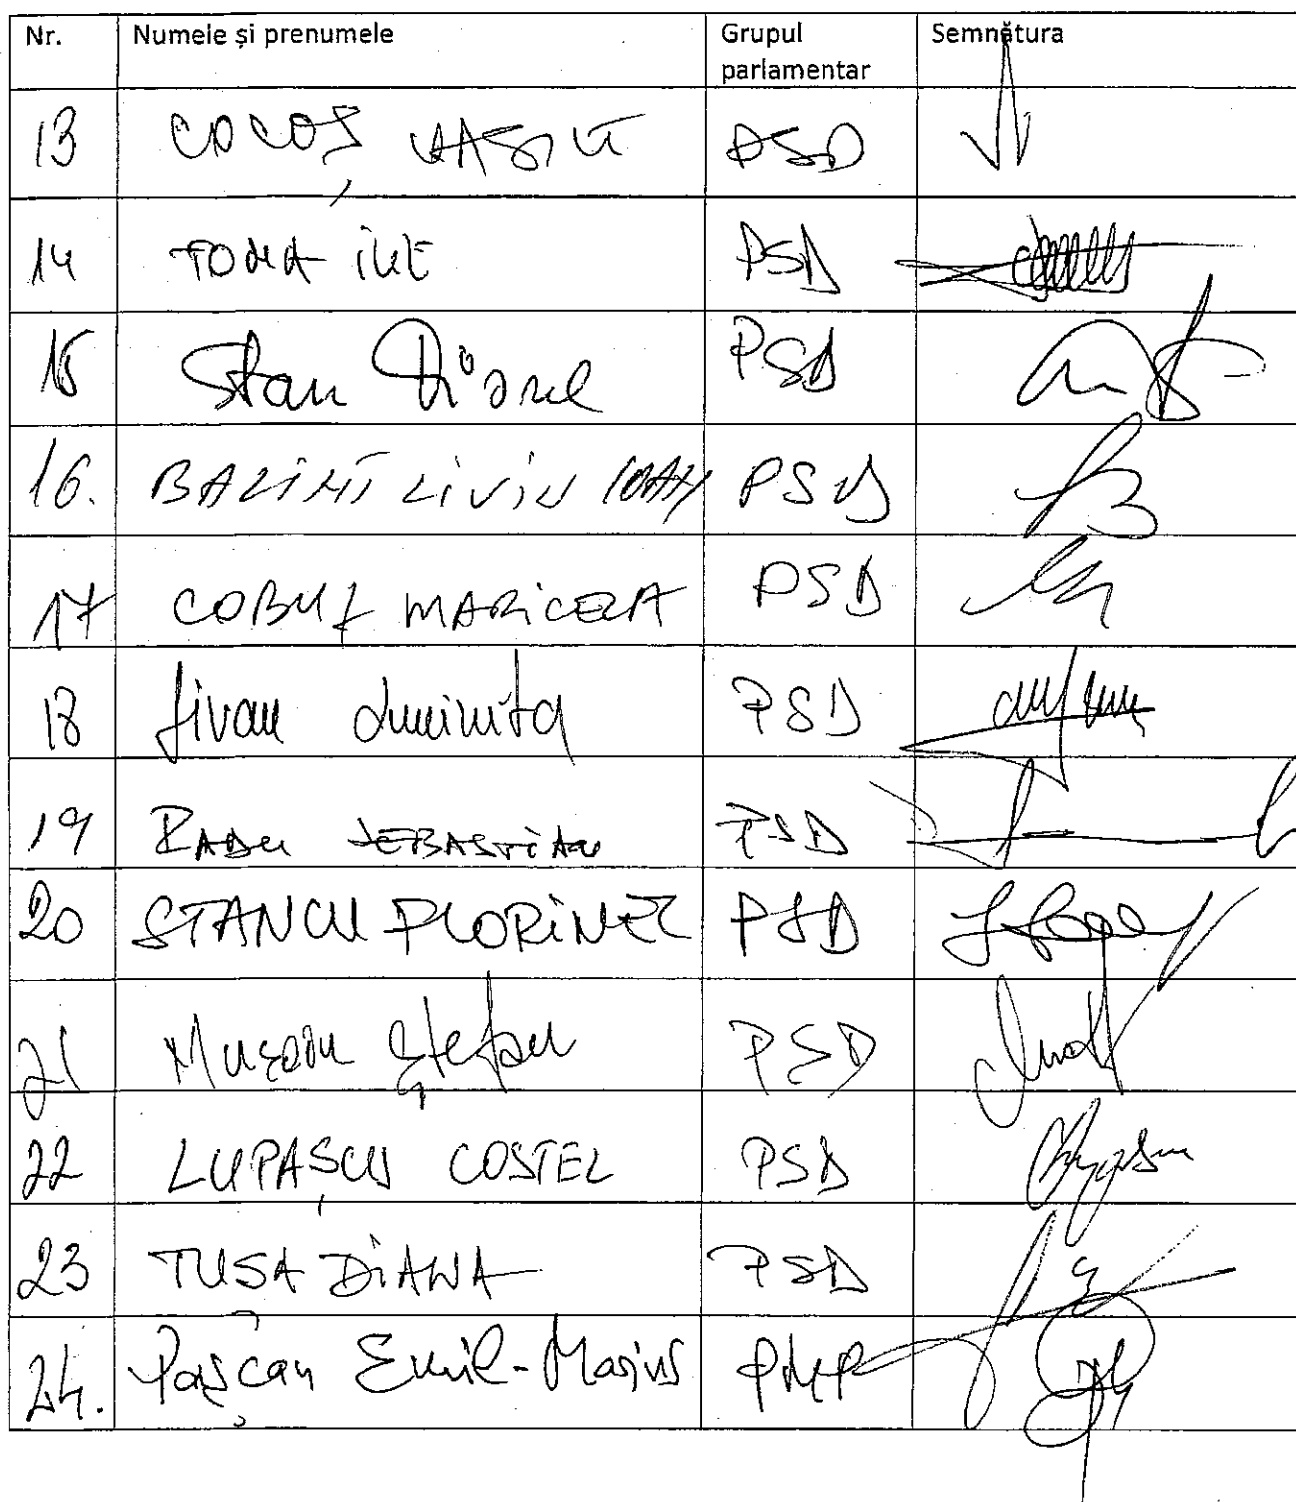 Nr. Numele și prenumele Grupul parlamentar Semnătura
13 COCOȘ VASILE PSD
14 TOMA ILIE PSD
15 Stan Viorel PSD
16. BALINT LIVIU IOAN PSD
17 COBUZ MARICELA PSD
18 Jivan Luminita PSD
19 RADU SEBASTIAN PSD
20 STANCU FLORINEL PSD
21 Mușoiu Ștefan PSD
22 LUPAȘCU COSTEL PSD
23 TUSA DIANA PSD
24. Pașcan Emil-Marius PMP